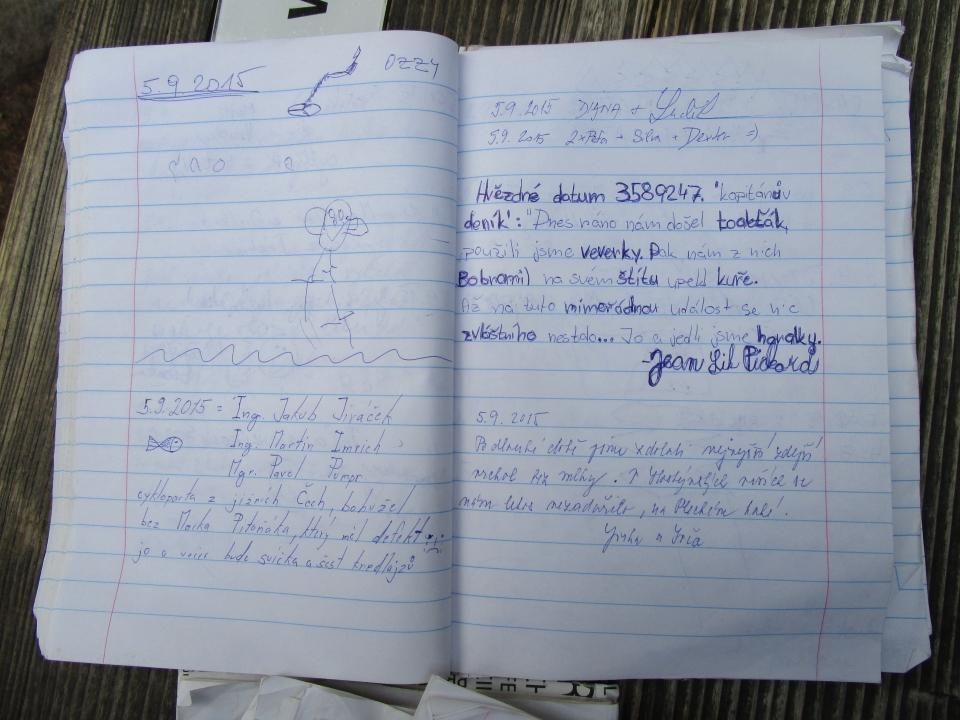 5.9.2015
OZZY
5.9.2015 = Ing. Jakub Jiráček
Ing. Martin Imrich
Mgr. Pavel
cykloparta z jižních Čech, bohužel
bez Marka Pitoňáka, který měl defekt
jo a večer bude svíčka a šest křidlajzů
5.9.2015 DIANA +
5.9.2015 2x Péťa + Silva + Dexter =)
Hvězdné datum 3589247. 'kapitánův
deník': "Dnes ráno nám došel
použili jsme veverky. Pak nám z nich
Bobrami) na svém štítu upekl kuře.
Až na tuto mimořádnou událost se nic
zvláštního nestalo... Jo a jedli jsme horalky.
-Jean
5.9.2015
Po dlouhé době jsme zdolali nejvyšší zdejší
vrchol bez mlhy.
nám letos
a